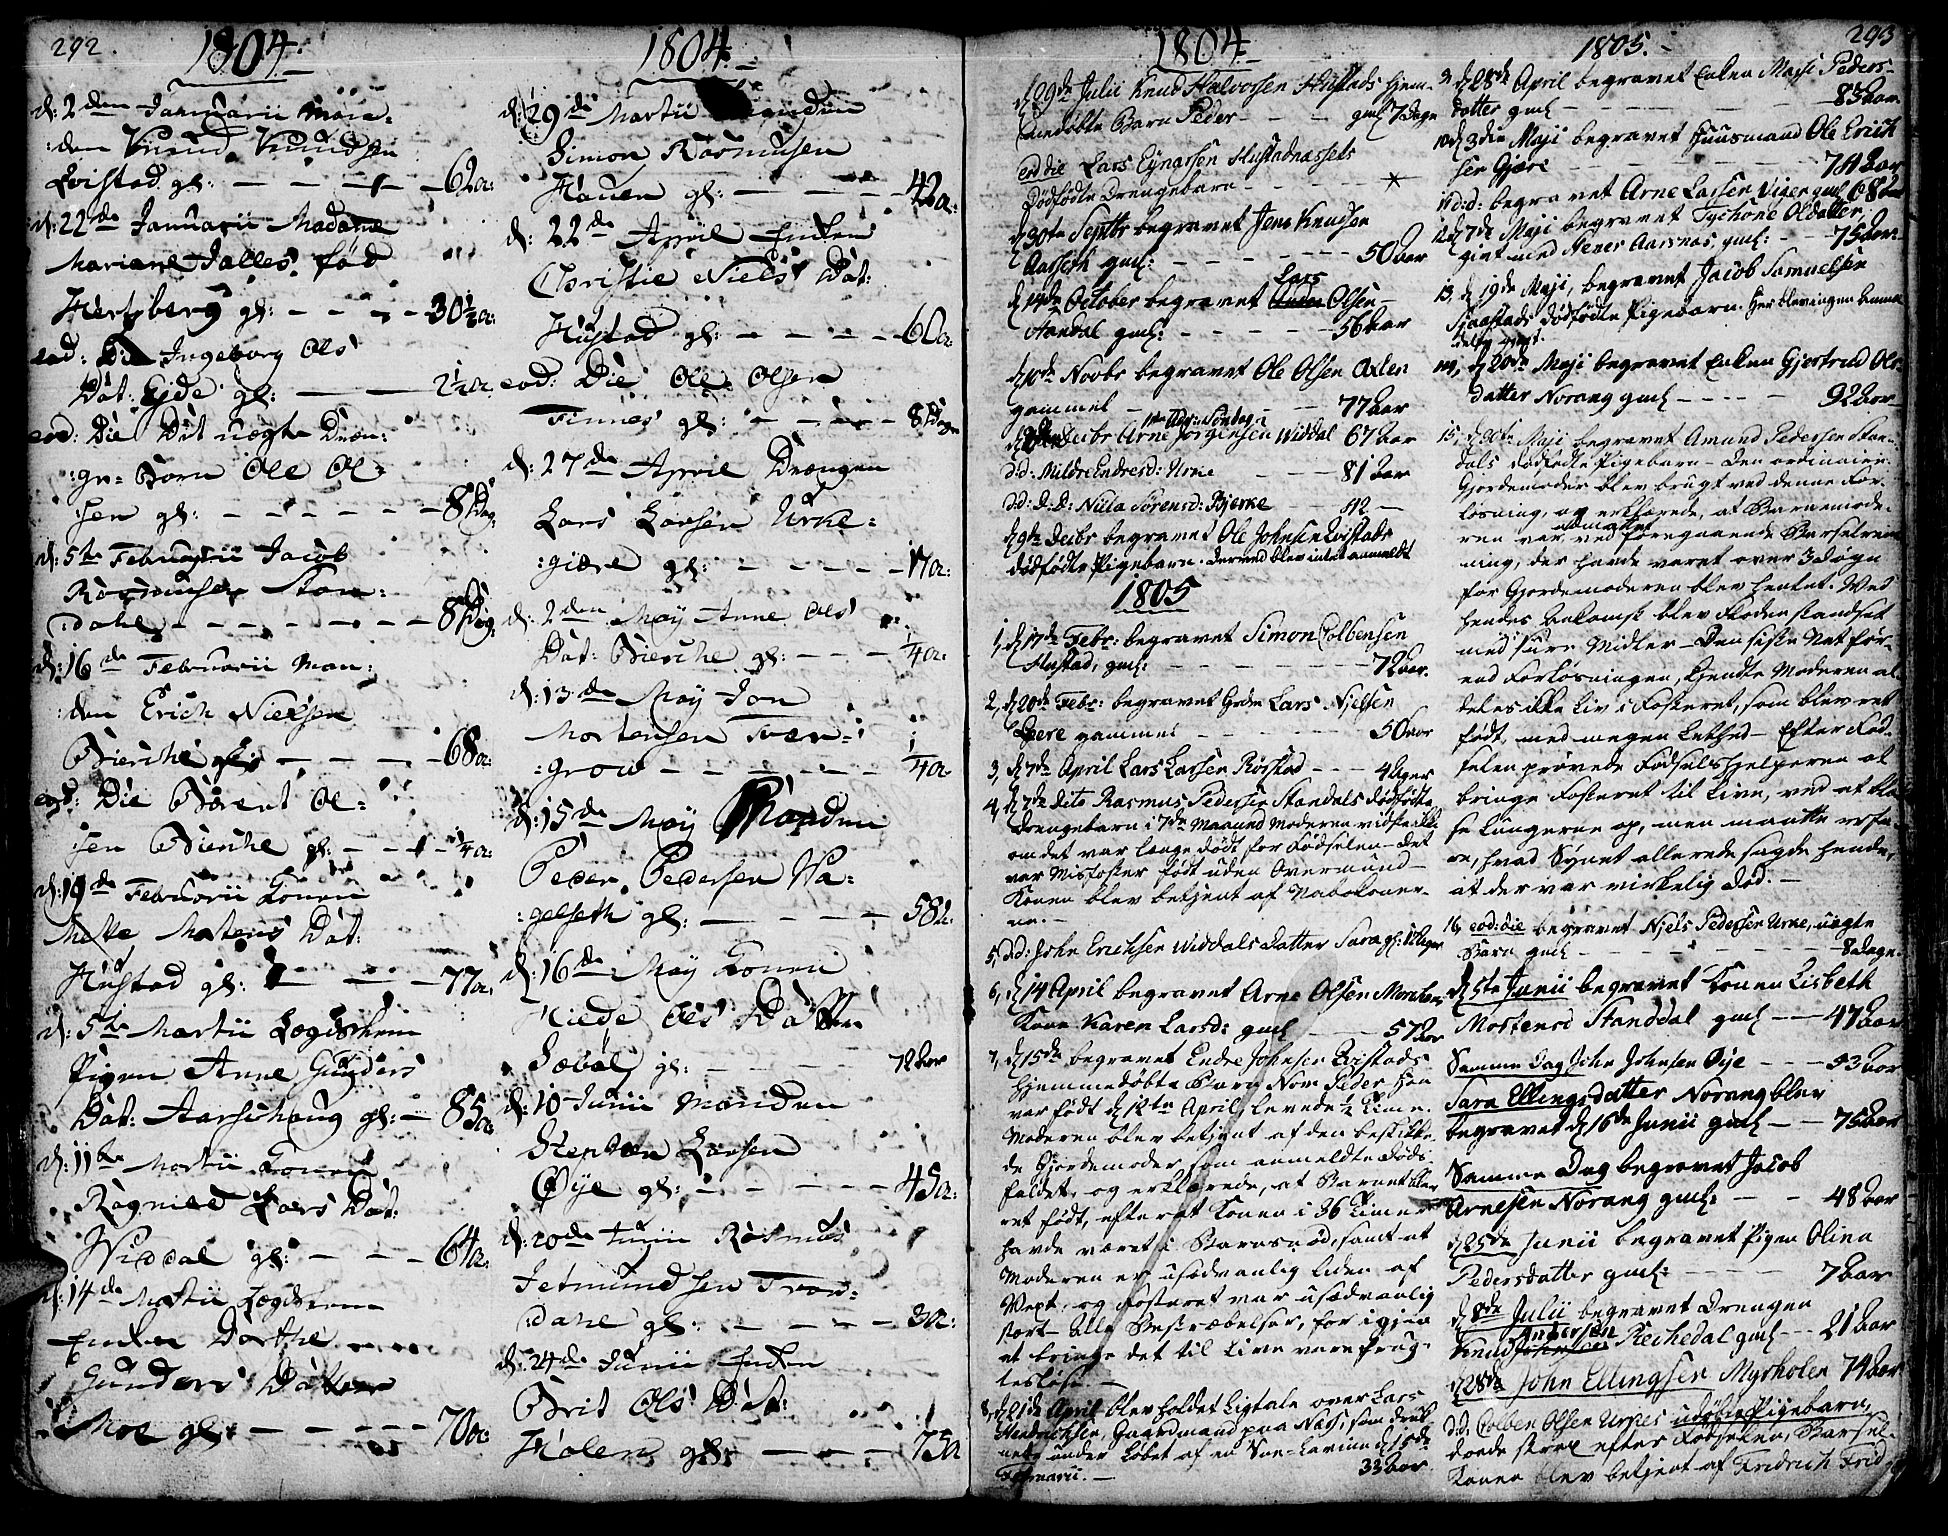 292.
1804.
d: 2den Januarii Man=
:den Knud Knudsen
Qvistad gl: — — — — 62a:
d: 22de Januarii Madame
Mariane Jalles, fød
Hertzberg gl: — — — 30½a:
eod: Die Ingeborg Ols
Dat: Ejde gl: — — 2½a
eod: Die Det uægte Dræn=
:ge= Barn Ole Ol=
:sen gl: — — — — 8 Dag:
d: 5te Februarii Jacob
Rasmusen Stan=
:dahl — — — — 8 Dag:
d: 16de Februarii Man=
:den Erich Nielsen
Bierche gl: — — — 68a:
eod: Die Bernt Ol=
:sen Bierche gl: — — ¼a:
d: 19de Februarii Konen
Mette Matens Dat:
Hustad gl: — — — 77a:
d: 5te Martii Lægdslem
Pigen Anne Gunders
Dat: Aarschoug gl: — 85a:
d: 11te Martii Konen
Ragnild Lars Dat:
Widdal gl: — — — 64a:
d: 14de Martii Lægdslem
Enken Dorthe
Gunders Datter
Moe gl: — — — — 70a:
1804.
d: 29de Martii Manden
Simon Rasmusen
Hauen gl: — — — 42a:
d: 22de April Enken
Christie Niels Dat:
Hustad gl: — — — 60a:
eod: Die Ole Olsen
Finnes gl: — — — 8 Dage
d: 27de April Drængen
Lars Larsen Urke=
:giære gl: — — — — 17a:
d: 2den May Anne Ols
Dat: Bierche gl: — — ¼a:
d: 13de May Jon
Mortensen Tvær=
:grow — — — — ¼a:
d: 15de May Manden
Peder Pedersen Wa=
:gelseth gl: — — — 58a:
d: 16de May Konen
Hilde Ols Datter
Sæbøl gl: — — — 72 aar
d: 10 Junii Manden
Stephen Larsen
Øye gl: — — — — 45a:
d: 20de Junii Rasmus
Jetmundsen Stan=
:dahl gl: — — — 30a:
d: 24de Junii Enken
Brit Ols Dat:
Holen gl: — — — 75a
1804.
d 29de Julii Knud Halvorsen Hustads hjem=
medøbte Barn Peder — — gml 7 Dage
eod die Lars Ejnarsen Hustadnæssets
Dødfødte Drengebarn — — —
d 30te Septbr begravet Jens Knudsen
Aassen gml: — — — — 50 aar
d 14de October begravet Lars Olsen
Aandal gml: — — — — 56 aar
d 10de Novbr begravet Ole Olsen Oxlen
gammel — — — 77 aar
1ste Adv: Søndag
Decbr Arne Jørgensen Widdal 67 aar
d:d: Mildre Endresd: Urne — — 81 aar
d:d: D: D: Nilla Sørensd: Bjerke — 12 —
d 9de Decbr begravet Ole Johnsen Qvistads
dødfødte Pigebarn. Derved blev intet anmeldt
1805
1, d 17de Febr: begravet Simon Colbensen
Hustad, gml: — — — — 72 aar.
2, d 20de Febr: begravet Grdm Lars Njelsen
Lijere gammel — — — — 50 aar
3, d 7de April Lars Larsen Rørstad — — 4 Uger
4, d 7de dito Rasmus Pedersen Standals dødfødte
Drengebarn i 7de Maaned Moderen vidste ikke
om det var længe dødt før Fødselen — Det
var Misfoster født uden Overmund —
Konen blev betjent af Nabokoner-
ne. —
5, d.d: John Erichsen Widdals Datter Sara gl: 12 Uger
6, d 14 April begravet Arne Olsen
Kone Karen Larsd: gml — — 57 aar
7, d 15de begravet Endre Johnsen Qvistads
hjemmedøbte Barn Nom Peder. Han
var født d 12te April, levede ½ Time.
Moderen blev betjent af den beskikke-
de Gjordemoder som anmeldte Døds
faldet, og erklærede, at Barnet blev
ret født, efter at Konen i 36 Timer
havde været i Barnsnød, samt at
Moderen er usædvanlig liden af
Vext, og Fosteret var usædvanlig
stort — Alle Bestræbelser, for igjen
at bringe det til Live vare frug-
tesløse. —
8, d 21de April blev holdet Ligtale over Lars
Hendrichsen, Gaardmand paa Næss, som druk-
nede under Løbet af en Snee-Lavine d 15de
Februarii. — 33 aar
293
1805.
9. d 28de April begravet Enken Massi Peders-
datter gml — — — — 83 aar
10 d 3die Maji begravet Huusmand Ole Erich
sen Gjære — — — — 71 aar
11 d:d: begravet Arne Larsen Viger gml 68 aar
12 d 7de Maji begravet Tychone Olsdatter,
gift med Aarsnæs, gml: — 75 aar
13. d 19de Maji, begravet Jacob Samuelsen
Sjaastads dødfødte Pigebarn. Her blev ingen anmel
delse gjort.
14, d 20de Maji begravet Enken Gjertrud Ols-
datter Norang gml — — — — 92 aar
15, d 30te Maji begravet Amund Pedersen Stan-
dals dødfødte Pigebarn — Den ordinaire
Gjordemoder blev brugt ved denne For-
løsning, og erklærede, at Barnemode-
ren var udmattet ved foregaaende Barselreen
ning, der havde varet over 3 Døgn
før Gjordemoderen blev hentet. Ved
hendes Ankomst blev Floden standset
med sure Midler — Den siste Nat før-
end Forløsningen, kjendte Moderen al
deles ikke Liv i Fosteret, som blev ret
født, med megen Lethed — Efter Fød-
selen prøvede Fødselshjelperen at
bringe Fosteret til Live, ved at blæ
se Lungerne op, men maatte erfa-
re, hvad Synet allerede sagde hende,
at der var virkelig Død. —
16, eod: die begravet Njels Pedersen Urke, uægte
Barn gml — — — — 8 Dage.
d 5te Junii begravet Konen Lisbeth
Mortensd Standdal gml — — 47 aar
Samme Dag John Johnsen Øije — 53 aar
Sara Ellingsdatter Norang blev
begravet d 16de Junii gml — — 75 aar
Samme Dag begravet Jacob
Arnesen Norang gml: — — 48 aar
d 25de Junii begravet Pigen Olina
Pedersdatter gml: — — — 72 aar
d 8de Julii begravet Drengen
Knud Andersen Rechedal gml — 21 aar
d 28de John Ellingsen Myrholen 74 aar
d:d: Colben Olsen Urkes udøbte Pigebarn,
døde strax efter Fødselen, Barsel-
Konen blev betjent af Fridrich Frid